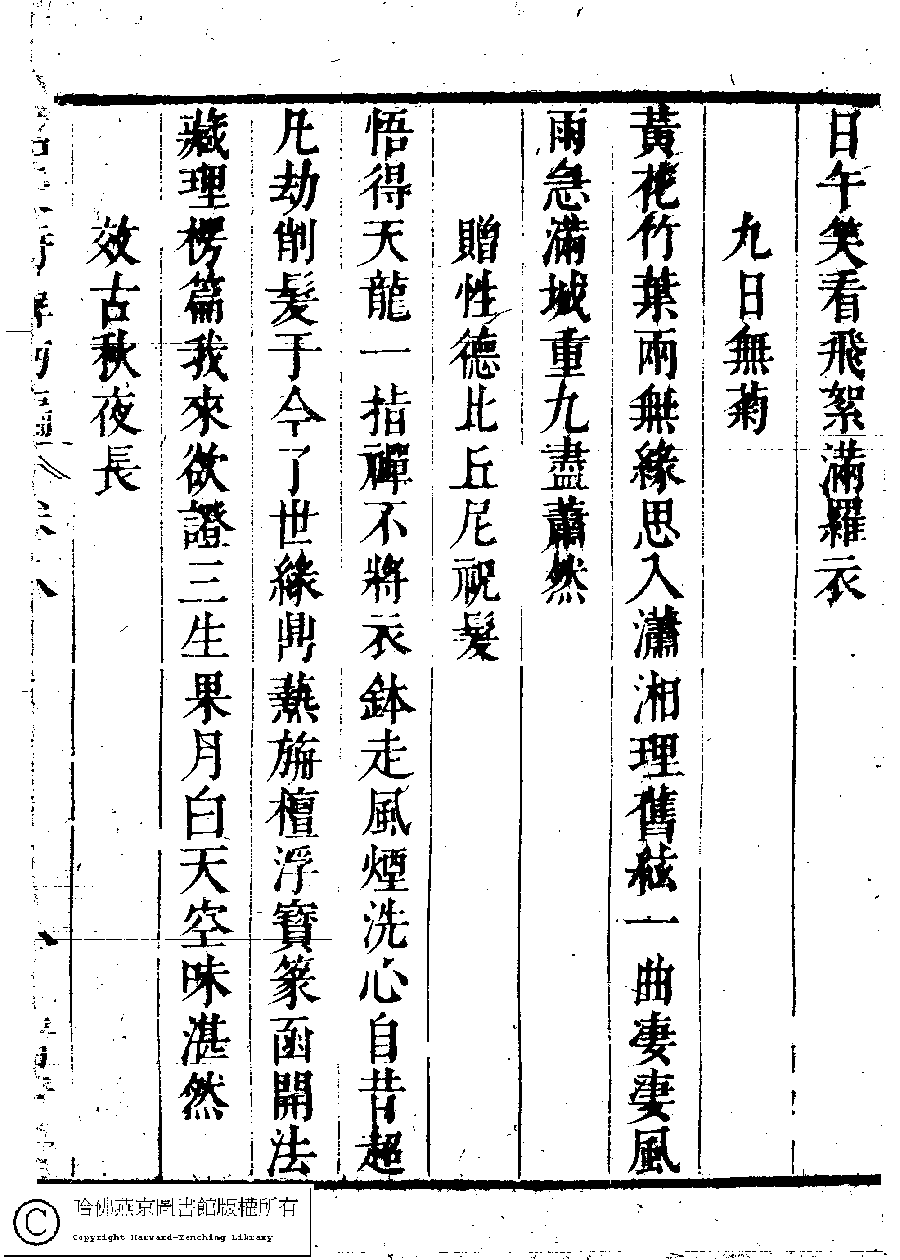 日午笑看飛絮滿羅衣
九日無菊
黃花竹葉兩無緣思入瀟湘理舊絃一曲凄凄風
雨急滿城重九盡蕭然
贈性德比丘尼祝髮
悟得天龍一指禪不將衣鉢走風煙洗心自昔超
凡劫削髮于今了世緣鼎爇旃檀浮寶篆函開法
藏理楞篇我來欲證三生果月白天空味湛然
效古秋夜長
哈佛燕京圖書館版權所有
Copyright Harvard-Yenching Library